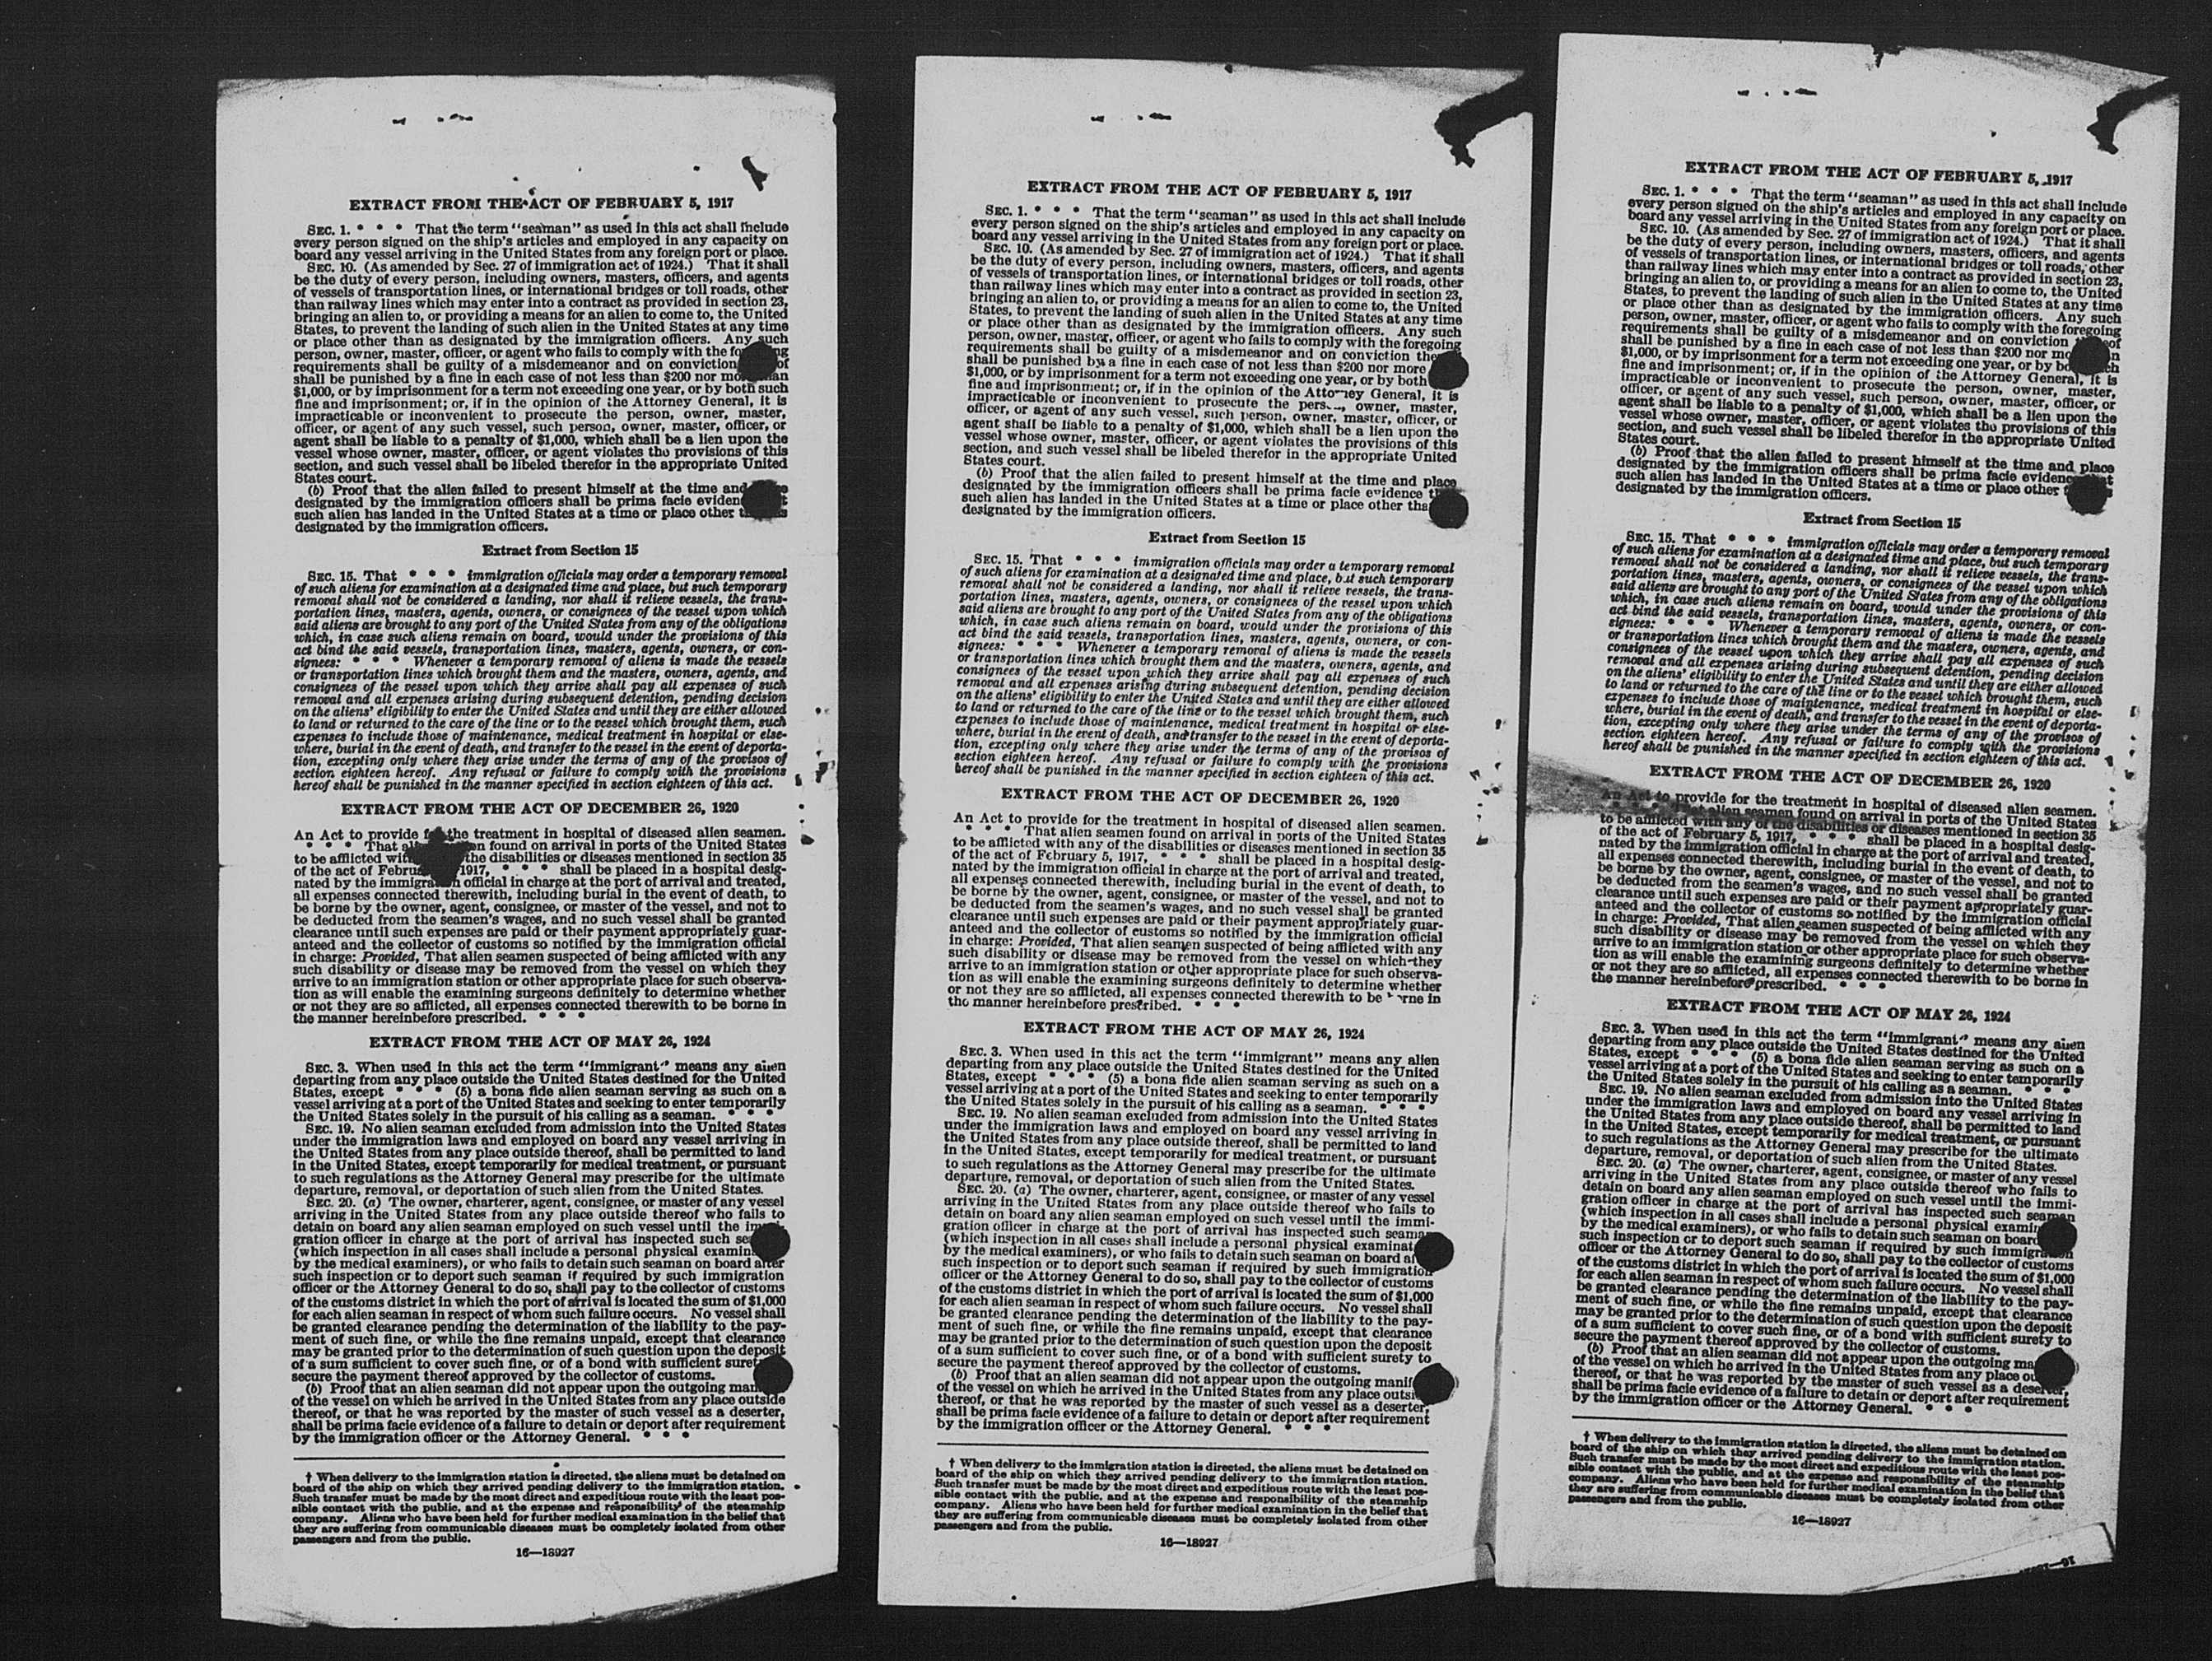 EXTRACT FROM THE ACT OF FEBRUARY 5, 1917
SEC. 1. * * * That the term "seaman" as used in this act shall include
every person signed on the ship's articles and employed in any capacity on
board any vessel arriving in the United States from any foreign port or place.
SEC. 10. (As amended by Sec. 27 of immigration act of 1924.) That it shall
be the duty of every person, including owners, masters, officers, and agents
of vessels of transportation lines, or international bridges or toll roads, other
than railway lines which may enter into a contract as provided in section 23,
bringing an alien to, or providing a means for an alien to come to, the United
States, to prevent the landing of such alien in the United States at any time
or place other than as designated by the immigration officers. Any such
person, owner, master, officer, or agent who fails to comply with the
requirements shall be guilty of a misdemeanor and on conviction of
shall be punished by a fine in each case of not less than $200 nor
$1,000, or by imprisonment for a term not exceeding one year, or by both such
fine and imprisonment; or, if in the opinion of the Attorney General, it is
impracticable or inconvenient to prosecute the person, owner, master,
officer, or agent of any such vessel, such person, owner, master, officer, or
agent shall be liable to a penalty of $1,000, which shall be a lien upon the
vessel whose owner, master, officer, or agent violates the provisions of this
section, and such vessel shall be libeled therefor in the appropriate United
States court.
(b) Proof that the alien failed to present himself at the time and
designated by the immigration officers shall be prima facie
such alien has landed in the United States at a time or place other
designated by the immigration officers.
Extract from Section 15
SEC. 15. That * * * immigration officials may order a temporary removal
of such aliens for examination at a designated time and place, but such temporary
removal shall not be considered a landing, nor shall it relieve vessels, the trans-
portation lines, masters, agents, owners, or consignees of the vessel upon which
said aliens are brought to any port of the United States from any of the obligations
which, in case such aliens remain on board, would under the provisions of this
act bind the said vessels, transportation lines, masters, agents, owners, or con-
signees: * * * Whenever a temporary removal of aliens is made the vessels
or transportation lines which brought them and the masters, owners, agents, and
consignees of the vessel upon which they arrive shall pay all expenses of such
removal and all expenses arising during subsequent detention, pending decision
on the aliens' eligibility to enter the United States and until they are either allowed
to land or returned to the care of the line or to the vessel which brought them, such
expenses to include those of maintenance, medical treatment in hospital or else-
where, burial in the event of death, and transfer to the vessel in the event of deporta-
tion, excepting only where they arise under the terms of any of the provisos of
section eighteen hereof. Any refusal or failure to comply with the provisions
hereof shall be punished in the manner specified in section eighteen of this act.
EXTRACT FROM THE ACT OF DECEMBER 26, 1920
An Act to provide the treatment in hospital of diseased alien seamen.
* * * That found on arrival in ports of the United States
to be afflicted the disabilities or diseases mentioned in section 35
of the act of 1917, * * * shall be placed in a hospital desig-
nated by the immigration official in charge at the port of arrival and treated,
all expenses connected therewith, including burial in the event of death, to
be borne by the owner, agent, consignee, or master of the vessel, and not to
be deducted from the seamen's wages, and no such vessel shall be granted
clearance until such expenses are paid or their payment appropriately guar-
anteed and the collector of customs so notified by the immigration official
in charge: Provided, That alien seamen suspected of being afflicted with any
such disability or disease may be removed from the vessel on which they
arrive to an immigration station or other appropriate place for such observa-
tion as will enable the examining surgeons definitely to determine whether
or not they are so afflicted, all expenses connected therewith to be borne in
the manner hereinbefore prescribed. * * *
EXTRACT FROM THE ACT OF MAY 26, 1924
SEC. 3. When used in this act the term "immigrant" means any alien
departing from any place outside the United States destined for the United
States, except * * * (5) a bona fide alien seaman serving as such on a
vessel arriving at a port of the United States and seeking to enter temporarily
the United States solely in the pursuit of his calling as a seaman. * * *
SEC. 19. No alien seaman excluded from admission into the United States
under the immigration laws and employed on board any vessel arriving in
the United States from any place outside thereof, shall be permitted to land
in the United States, except temporarily for medical treatment, or pursuant
to such regulations as the Attorney General may prescribe for the ultimate
departure, removal, or deportation of such alien from the United States.
SEC. 20. (a) The owner, charterer, agent, consignee, or master of any vessel
arriving in the United States from any place outside thereof who fails to
detain on board any alien seaman employed on such vessel until the
gration officer in charge at the port of arrival has inspected such
(which inspection in all cases shall include a personal physical
by the medical examiners), or who fails to detain such seaman on board after
such inspection or to deport such seaman if required by such immigration
officer or the Attorney General to do so, shall pay to the collector of customs
of the customs district in which the port of arrival is located the sum of $1,000
for each alien seaman in respect of whom such failure occurs. No vessel shall
be granted clearance pending the determination of the liability to the pay-
ment of such fine, or while the fine remains unpaid, except that clearance
may be granted prior to the determination of such question upon the deposit
of a sum sufficient to cover such fine, or of a bond with sufficient
secure the payment thereof approved by the collector of customs.
(b) Proof that an alien seaman did not appear upon the outgoing
of the vessel on which he arrived in the United States from any place outside
thereof, or that he was reported by the master of such vessel as a deserter,
shall be prima facie evidence of a failure to detain or deport after requirement
by the immigration officer or the Attorney General. * * *
† When delivery to the immigration station is directed, the aliens must be detained on
board of the ship on which they arrived pending delivery to the immigration station.
Such transfer must be made by the most direct and expeditious route with the least pos-
sible contact with the public, and at the expense and responsibility of the steamship
company. Aliens who have been held for further medical examination in the belief that
they are suffering from communicable diseases must be completely isolated from other
passengers and from the public.
16—18927
EXTRACT FROM THE ACT OF FEBRUARY 5, 1917
SEC. 1. * * * That the term "seaman" as used in this act shall include
every person signed on the ship's articles and employed in any capacity on
board any vessel arriving in the United States from any foreign port or place.
SEC. 10. (As amended by Sec. 27 of immigration act of 1924.) That it shall
be the duty of every person, including owners, masters, officers, and agents
of vessels of transportation lines, or international bridges or toll roads, other
than railway lines which may enter into a contract as provided in section 23,
bringing an alien to, or providing a means for an alien to come to, the United
States, to prevent the landing of such alien in the United States at any time
or place other than as designated by the immigration officers. Any such
person, owner, master, officer, or agent who fails to comply with the foregoing
requirements shall be guilty of a misdemeanor and on conviction
shall be punished by a fine in each case of not less than $200 nor more
$1,000, or by imprisonment for a term not exceeding one year, or by both
fine and imprisonment; or, if in the opinion of the Attorney General, it is
impracticable or inconvenient to prosecute the owner, master,
officer, or agent of any such vessel, such person, owner, master, officer, or
agent shall be liable to a penalty of $1,000, which shall be a lien upon the
vessel whose owner, master, officer, or agent violates the provisions of this
section, and such vessel shall be libeled therefor in the appropriate United
States court.
(b) Proof that the alien failed to present himself at the time and place
designated by the immigration officers shall be prima facie evidence
such alien has landed in the United States at a time or place other
designated by the immigration officers.
Extract from Section 15
SEC. 15. That * * * immigration officials may order a temporary removal
of such aliens for examination at a designated time and place, but such temporary
removal shall not be considered a landing, nor shall it relieve vessels, the trans-
portation lines, masters, agents, owners, or consignees of the vessel upon which
said aliens are brought to any port of the United States from any of the obligations
which, in case such aliens remain on board, would under the provisions of this
act bind the said vessels, transportation lines, masters, agents, owners, or con-
signees: * * * Whenever a temporary removal of aliens is made the vessels
or transportation lines which brought them and the masters, owners, agents, and
consignees of the vessel upon which they arrive shall pay all expenses of such
removal and all expenses arising during subsequent detention, pending decision
on the aliens' eligibility to enter the United States and until they are either allowed
to land or returned to the care of the line or to the vessel which brought them, such
expenses to include those of maintenance, medical treatment in hospital or else-
where, burial in the event of death, and transfer to the vessel in the event of deporta-
tion, excepting only where they arise under the terms of any of the provisos of
section eighteen hereof. Any refusal or failure to comply with the provisions
hereof shall be punished in the manner specified in section eighteen of this act.
EXTRACT FROM THE ACT OF DECEMBER 26, 1920
An Act to provide for the treatment in hospital of diseased alien seamen.
* * * That alien seamen found on arrival in ports of the United States
to be afflicted with any of the disabilities or diseases mentioned in section 35
of the act of February 5, 1917, * * * shall be placed in a hospital desig-
nated by the immigration official in charge at the port of arrival and treated,
all expenses connected therewith, including burial in the event of death, to
be borne by the owner, agent, consignee, or master of the vessel, and not to
be deducted from the seamen's wages, and no such vessel shall be granted
clearance until such expenses are paid or their payment appropriately guar-
anteed and the collector of customs so notified by the immigration official
in charge: Provided, That alien seamen suspected of being afflicted with any
such disability or disease may be removed from the vessel on which they
arrive to an immigration station or other appropriate place for such observa-
tion as will enable the examining surgeons definitely to determine whether
or not they are so afflicted, all expenses connected therewith to be in
the manner hereinbefore prescribed. * * *
EXTRACT FROM THE ACT OF MAY 26, 1924
SEC. 3. When used in this act the term "immigrant" means any alien
departing from any place outside the United States destined for the United
States, except * * * (5) a bona fide alien seaman serving as such on a
vessel arriving at a port of the United States and seeking to enter temporarily
the United States solely in the pursuit of his calling as a seaman. * * *
SEC. 19. No alien seaman excluded from admission into the United States
under the immigration laws and employed on board any vessel arriving in
the United States from any place outside thereof, shall be permitted to land
in the United States, except temporarily for medical treatment, or pursuant
to such regulations as the Attorney General may prescribe for the ultimate
departure, removal, or deportation of such alien from the United States.
SEC. 20. (a) The owner, charterer, agent, consignee, or master of any vessel
arriving in the United States from any place outside thereof who fails to
detain on board any alien seaman employed on such vessel until the immi-
gration officer in charge at the port of arrival has inspected such seaman
(which inspection in all cases shall include a personal physical
by the medical examiners), or who fails to detain such seaman on board
such inspection or to deport such seaman if required by such immigration
officer or the Attorney General to do so, shall pay to the collector of customs
of the customs district in which the port of arrival is located the sum of $1,000
for each alien seaman in respect of whom such failure occurs. No vessel shall
be granted clearance pending the determination of the liability to the pay-
ment of such fine, or while the fine remains unpaid, except that clearance
may be granted prior to the determination of such question upon the deposit
of a sum sufficient to cover such fine, or of a bond with sufficient surety to
secure the payment thereof approved by the collector of customs.
(b) Proof that an alien seaman did not appear upon the outgoing
of the vessel on which he arrived in the United States from any place
thereof, or that he was reported by the master of such vessel as a deserter,
shall be prima facie evidence of a failure to detain or deport after requirement
by the immigration officer or the Attorney General. * * *
† When delivery to the immigration station is directed, the aliens must be detained on
board of the ship on which they arrived pending delivery to the immigration station.
Such transfer must be made by the most direct and expeditious route with the least pos-
sible contact with the public, and at the expense and responsibility of the steamship
company. Aliens who have been held for further medical examination in the belief that
they are suffering from communicable diseases must be completely isolated from other
passengers and from the public.
16—18927
EXTRACT FROM THE ACT OF FEBRUARY 5, 1917
SEC. 1. * * * That the term "seaman" as used in this act shall include
every person signed on the ship's articles and employed in any capacity on
board any vessel arriving in the United States from any foreign port or place.
SEC. 10. (As amended by Sec. 27 of immigration act of 1924.) That it shall
be the duty of every person, including owners, masters, officers, and agents
of vessels of transportation lines, or international bridges or toll roads, other
than railway lines which may enter into a contract as provided in section 23,
bringing an alien to, or providing a means for an alien to come to, the United
States, to prevent the landing of such alien in the United States at any time
or place other than as designated by the immigration officers. Any such
person, owner, master, officer, or agent who fails to comply with the foregoing
requirements shall be guilty of a misdemeanor and on conviction
shall be punished by a fine in each case of not less than $200 nor
$1,000, or by imprisonment for a term not exceeding one year, or by
fine and imprisonment; or, if in the opinion of the Attorney General, it is
impracticable or inconvenient to prosecute the person, owner, master,
officer, or agent of any such vessel, such person, owner, master, officer, or
agent shall be liable to a penalty of $1,000, which shall be a lien upon the
vessel whose owner, master, officer, or agent violates the provisions of this
section, and such vessel shall be libeled therefor in the appropriate United
States court.
(b) Proof that the alien failed to present himself at the time and place
designated by the immigration officers shall be prima facie
such alien has landed in the United States at a time or place other
designated by the immigration officers.
Extract from Section 15
SEC. 15. That * * * immigration officials may order a temporary removal
of such aliens for examination at a designated time and place, but such temporary
removal shall not be considered a landing, nor shall it relieve vessels, the trans-
portation lines, masters, agents, owners, or consignees of the vessel upon which
said aliens are brought to any port of the United States from any of the obligations
which, in case such aliens remain on board, would under the provisions of this
act bind the said vessels, transportation lines, masters, agents, owners, or con-
signees: * * * Whenever a temporary removal of aliens is made the vessels
or transportation lines which brought them and the masters, owners, agents, and
consignees of the vessel upon which they arrive shall pay all expenses of such
removal and all expenses arising during subsequent detention, pending decision
on the aliens' eligibility to enter the United States and until they are either allowed
to land or returned to the care of the line or to the vessel which brought them, such
expenses to include those of maintenance, medical treatment in hospital or else-
where, burial in the event of death, and transfer to the vessel in the event of deporta-
tion, excepting only where they arise under the terms of any of the provisos of
section eighteen hereof. Any refusal or failure to comply with the provisions
hereof shall be punished in the manner specified in section eighteen of this act.
EXTRACT FROM THE ACT OF DECEMBER 26, 1920
An Act to provide for the treatment in hospital of diseased alien seamen.
That alien seamen found on arrival in ports of the United States
to be afflicted with any of the disabilities or diseases mentioned in section 35
of the act of February 5, 1917, * * * shall be placed in a hospital desig-
nated by the immigration official in charge at the port of arrival and treated,
all expenses connected therewith, including burial in the event of death, to
be borne by the owner, agent, consignee, or master of the vessel, and not to
be deducted from the seamen's wages, and no such vessel shall be granted
clearance until such expenses are paid or their payment appropriately guar-
anteed and the collector of customs so notified by the immigration official
in charge: Provided, That alien seamen suspected of being afflicted with any
such disability or disease may be removed from the vessel on which they
arrive to an immigration station or other appropriate place for such observa-
tion as will enable the examining surgeons definitely to determine whether
or not they are so afflicted, all expenses connected therewith to be borne in
the manner hereinbefore prescribed. * * *
EXTRACT FROM THE ACT OF MAY 26, 1924
SEC. 3. When used in this act the term "immigrant" means any alien
departing from any place outside the United States destined for the United
States, except * * * (5) a bona fide alien seaman serving as such on a
vessel arriving at a port of the United States and seeking to enter temporarily
the United States solely in the pursuit of his calling as a seaman. * * *
SEC. 19. No alien seaman excluded from admission into the United States
under the immigration laws and employed on board any vessel arriving in
the United States from any place outside thereof, shall be permitted to land
in the United States, except temporarily for medical treatment, or pursuant
to such regulations as the Attorney General may prescribe for the ultimate
departure, removal, or deportation of such alien from the United States.
SEC. 20. (a) The owner, charterer, agent, consignee, or master of any vessel
arriving in the United States from any place outside thereof who fails to
detain on board any alien seaman employed on such vessel until the immi-
gration officer in charge at the port of arrival has inspected such seaman
(which inspection in all cases shall include a personal physical
by the medical examiners), or who fails to detain such seaman on board
such inspection or to deport such seaman if required by such
officer or the Attorney General to do so, shall pay to the collector of customs
of the customs district in which the port of arrival is located the sum of $1,000
for each alien seaman in respect of whom such failure occurs. No vessel shall
be granted clearance pending the determination of the liability to the pay-
ment of such fine, or while the fine remains unpaid, except that clearance
may be granted prior to the determination of such question upon the deposit
of a sum sufficient to cover such fine, or of a bond with sufficient surety to
secure the payment thereof approved by the collector of customs.
(b) Proof that an alien seaman did not appear upon the outgoing
of the vessel on which he arrived in the United States from any place
thereof, or that he was reported by the master of such vessel as a deserter,
shall be prima facie evidence of a failure to detain or deport after requirement
by the immigration officer or the Attorney General. * * *
† When delivery to the immigration station is directed, the aliens must be detained on
board of the ship on which they arrived pending delivery to the immigration station.
Such transfer must be made by the most direct and expeditious route with the least pos-
sible contact with the public, and at the expense and responsibility of the steamship
company. Aliens who have been held for further medical examination in the belief that
they are suffering from communicable diseases must be completely isolated from other
passengers and from the public.
16—18927